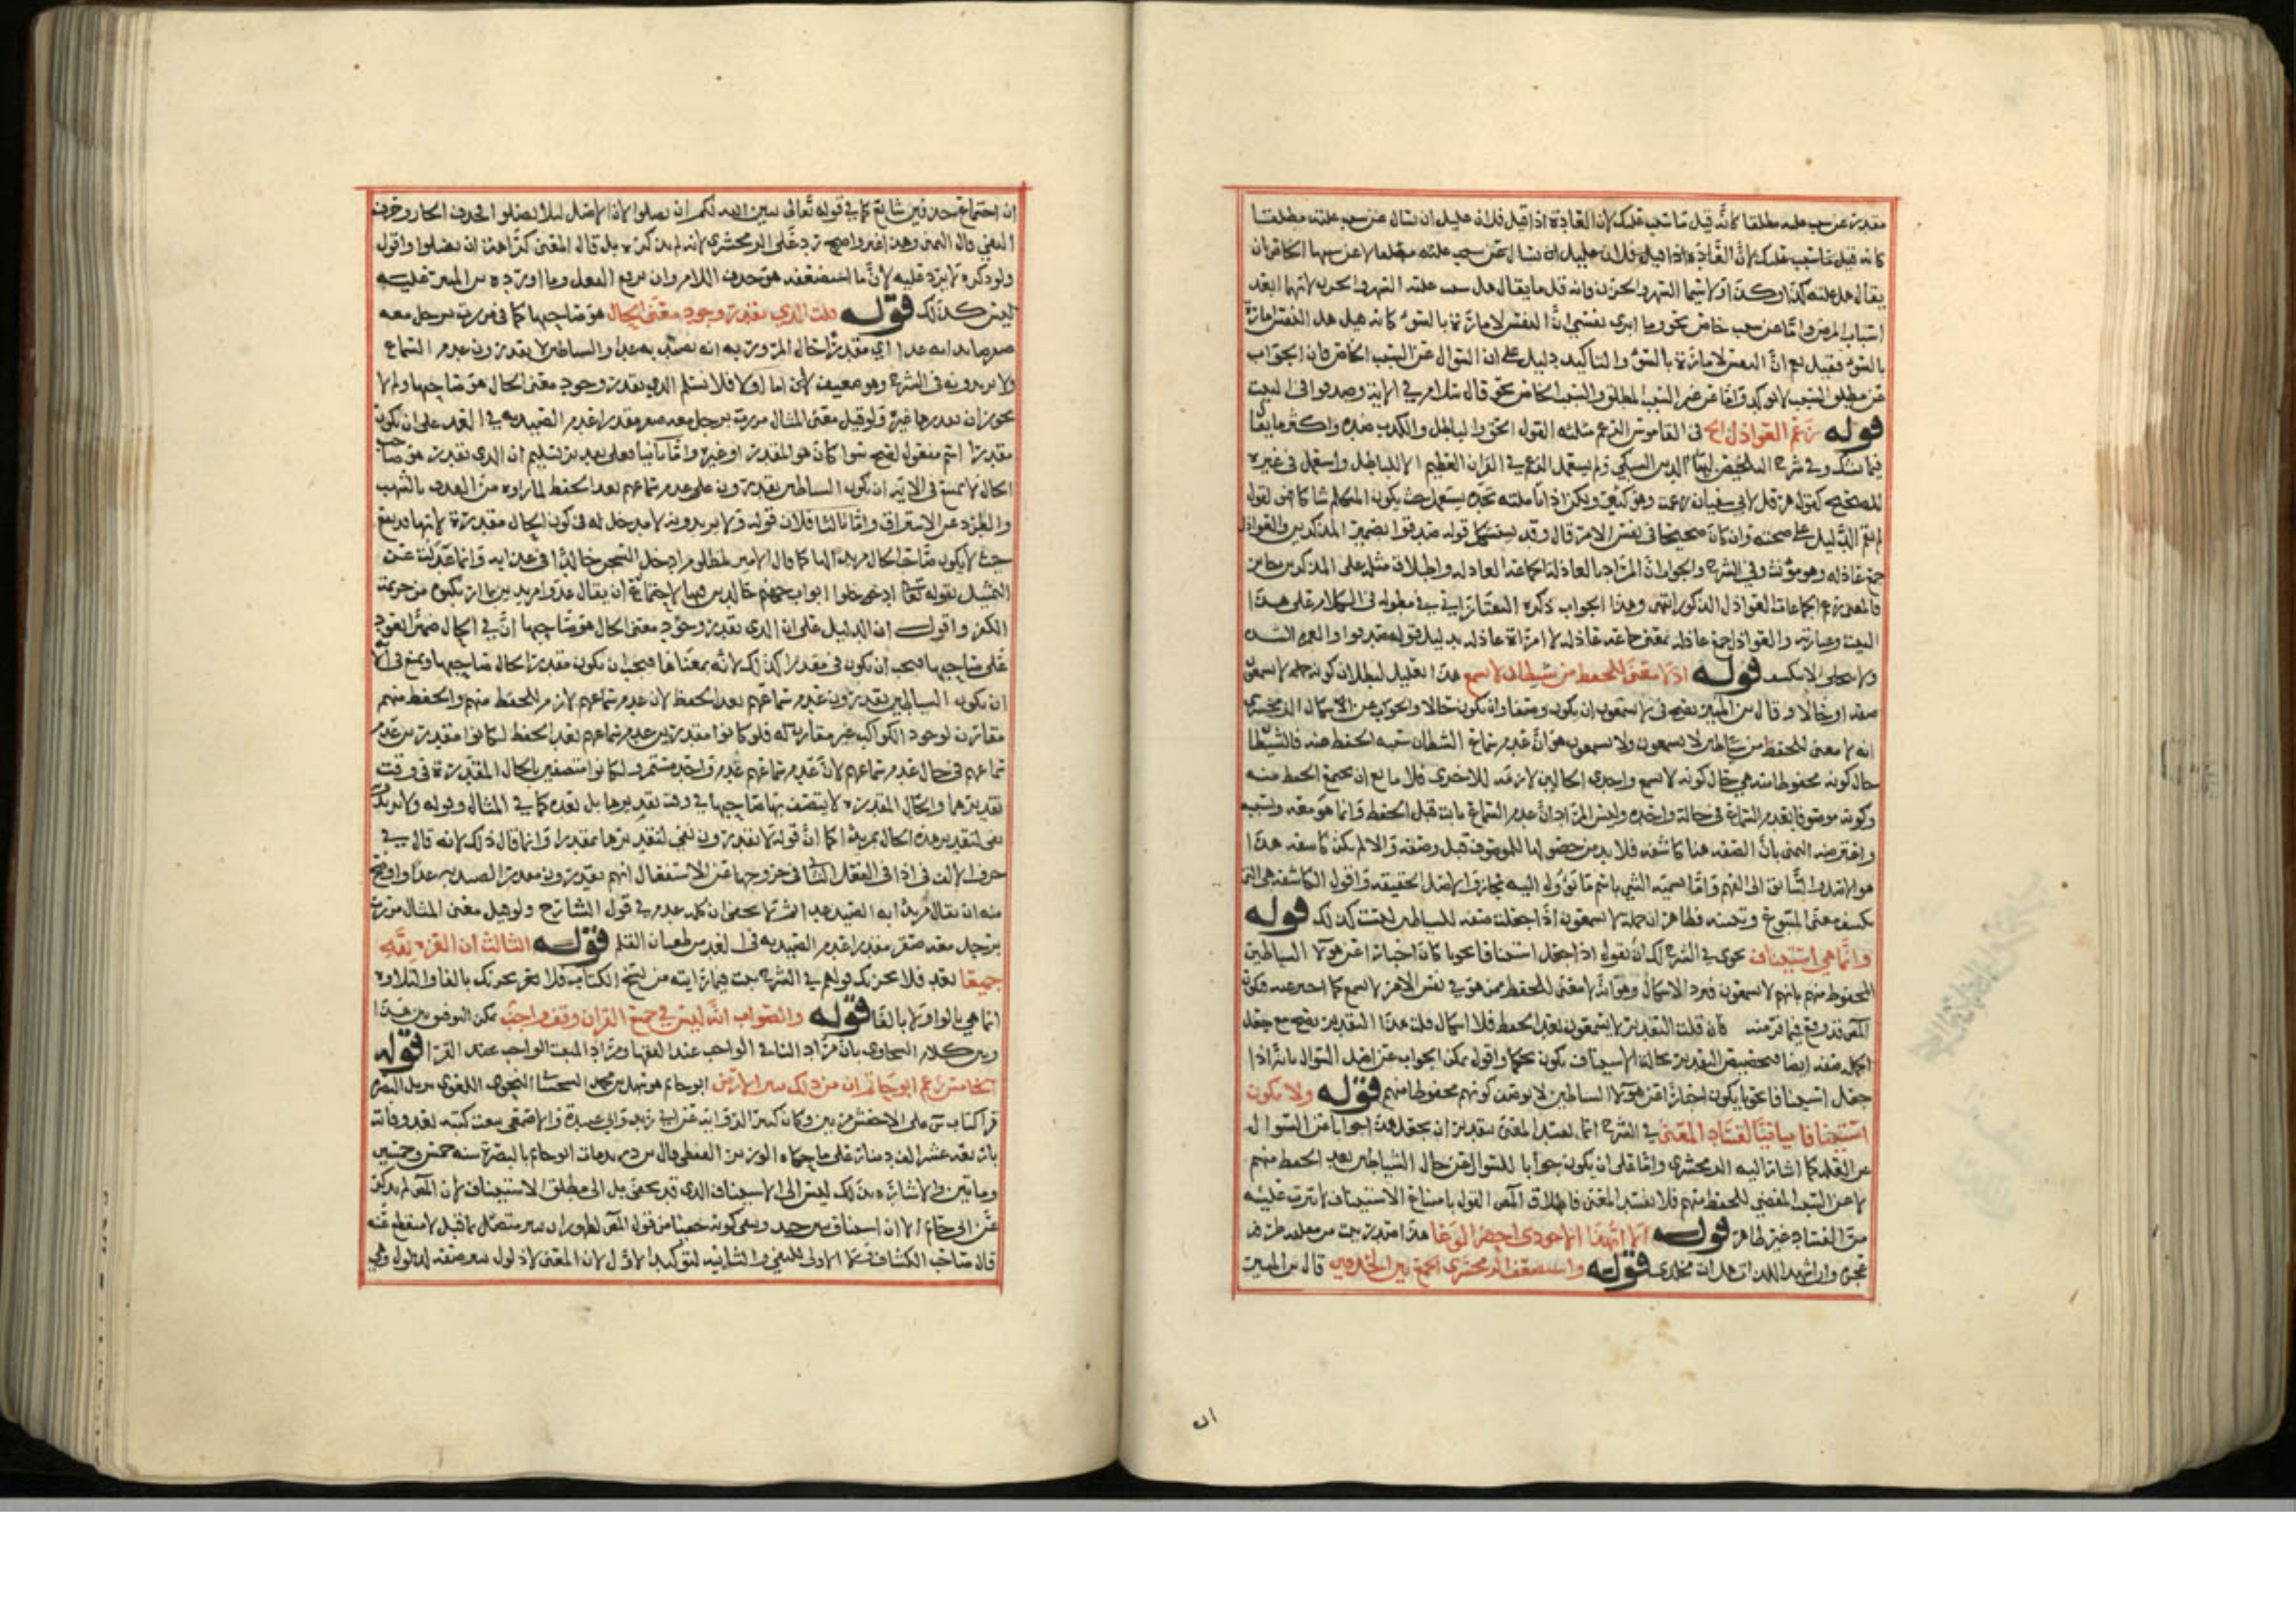 مقدرة عن سبب علته مطلقا كانه قيل ما سبب علتك لان العادة اذا قيل فلان عليل ان يسال عن سبب علته مطلقا
كانه قيل ما سبب علتك لان العادة اذا قيل فلان عليل ان يسال عن سبب علته مطلقا لا عن سببها الخاص بان
يقال هل علته كذا وكذا ولا سيما السهر والحزن فانه قل ما يقال هل سبب علته السهر والحزن لانهما ابعد
اسباب المرض واما عن سبب خاص نحو وما ابرئ نفسي ان النفس لامارة بالسوء كانه هل هذه النفس امارة
بالسوء فقيل نعم ان النفس لامارة بالسوء والتاكيد دليل على ان السوال عن السبب الخاص فان الجواب
عن مطلق السبب لا يوكد واما عن غير السبب المطلق والسبب الخاص نحو قال سلام في الاية وصدقوا في البيت
قوله زعم العواذل الخ في القاموس الزعم مثلثه القول الحق والباطل والكذب ضد واكثر ما يقال
فيما يشك وفي شرح التلخيص لبهاء الدين السبكي ولم يستعمل الزعم في القران العظيم الا للباطل واستعمل في غيره
للصحيح كقول هرقل لابي سفيان زعمت وهو كثير ولكن اذا تاملته تجده يستعمل حيث يكون المتكلم شاكا فهو كقول
لم يقم الدليل على صحته وان كان صحيحا في نفس الامر قال وقد يستشكل قوله صدقوا بضمير المذكرين والعواذل
جمع عاذلة وهو مونث وفي الشرح والجواب ان المراد بالعاذلة الجماعة العاذلة واطلاق مثله على المذكرين
فالمعنى زعم الجماعات العواذل الذكور انتهى وهذا الجواب ذكره التفتازاني في مطوله في الكلام على هذا
البيت وعبارته والعواذل جمع عاذلة بمعنى جماعة عاذلة لا امراة عاذلة بدليل قوله صدقوا
ولا تنجلي لا تنكشف قوله اذ لا معنى للحفظ من شيطان لا يسمع هذا تعليل لبطلان كونه جملة لا يسمعون
صفة او حالا وقال ابن المنير يصح في لا يسمعون ان يكون وصفا وان يكون حالا والجواب عن اشكال الزمخشري
انه لا معنى للحفظ من شياطين لا يسمعون ولا يسمعون هو ان عدم سماع الشيطان سببه الحفظ منه فالشيطان
حال كونه محفوظا منه هي حال كونه لا يسمع واحدى الحالين لازمة للاخرى فلا مانع ان يجتمع الحفظ منه
وكونه موصوفا بعدم السماع في حالة واحدة وليس المراد ان عدم السماع ثابت قبل الحفظ وانما هو معه وبسببه
واعترضه اليمني بان الصفة هنا كاشفة فلا بد من حضولها للموصوف قبل وصفه والا لم يكن كاشفة هذا
هو المتبادر السابق الى الفهم واما تسمية الشي باسم ما يوول اليه مجاز والاصل الحقيقة واقول الكاشفة هي التي
تكشف معنى المتبوع وتحسنه فظاهر ان جملة لا يسمعون اذا جعلت صفة للشياطين ليست كذلك قوله
وانما هي استيناف نحوي في الشرح لك ان تقول اذا جعل استينافا نحويا كان اخبارا عن هولا الشياطين
المحفوظ منهم بانهم لا يسمعون فيرد الاشكال وهو انه لا معنى للحفظ ممن هو في نفس الامر لا يسمع كما اخبر عنه فيكون
المص قد وقع فيما فر منه فان قلت التقدير لا يسمعون بعد الحفظ فلا اشكال قلت هذا التقدير يصح مع جعل
الجملة صفة ايضا فتخصيص التقدير بحالة الاستيناف يكون تحكما واقول يمكن الجواب عن اصل السوال بانه اذا
جعل استينافا نحويا يكون اخبارا عن هولا الشياطين لا بوصف كونهم محفوظا منهم قوله ولا يكون
استينافا بيانيا لفساد المعنى في الشرح انما يفسد المعنى بتقدير ان يجعل هذا جوابا عن السوال
عن العلة كما اشار اليه الزمخشري واما على ان يكون جوابا للسوال عن حال الشياطين بعد الحفظ منهم
لا عن السبب المقتضي للحفظ منهم فلا يفسد المعنى فاطلاق المص القول بامتناع الاستيناف لا يترتب عليه
من الفساد غير ظاهر قوله الا ايهذا الزاجري احضر الوغا هذا صدر بيت من معلقة طرفة
عجزه وان اشهد اللذات هل انت مخلدي قوله واستضعف الزمخشري الجمع بين الحذفين قال ابن المنير
ان
ان اجتماع حذفين شائع كما في قوله تعالى يبين الله لكم ان تضلوا لان الاصل لئلا تضلوا فحذف الجار وحرف
النفي قال اليمني وهذا غير واضح يرد على الزمخشري لانه لم يذكره بل قال المعنى كراهة ان تضلوا واقول
ولو ذكره لا يرد عليه لان ما استضعفه هو حذف اللام وان مع رفع الفعل وما اورده ابن المنير عليه
ليس كذلك قوله قلت الذي يقدر وجود معنى الحال هو صاحبها كما في مررت برجل معه
صقر صائدا به غدا اي مقدرا حال المرور به انه يصيد به غدا والشياطين لا يقدرون عدم السماع
ولا يريدونه في الشرح وهو ضعيف لان اما اولا فلا نسلم الذي يقدر وجود معنى الحال هو صاحبها ولم لا
يجوز ان يقدرها غيره ولو قيل معنى المثال مررت برجل معه صقر مقدرا عدم الصيد به في الغد على ان يكون
مقدرا اسم مفعول لصح سوا كان هو المقدر او غيره واما ثانيا فعلى تقدير تسليم ان الذي يقدر هو صاحب
الحال لا يمتنع في الاية ان يكون الشياطين يقدرون على عدم سماعهم بعد الحفظ لما راوه من القذف بالشهب
والطرد عن الاستراق واما ثالثا فلان قوله ولا يريدونه لا مدخل له في كون الحال مقدرة لانها قد تقع
حيث لا يكون صاحب الحال مريدا لها كما قال الامير لمظلوم ادخل السجن خالدا في عذابه وانما عدلت عن
التمثيل بقوله تعالى ادخلوا ابواب جهنم خالدين فيها لاحتمال ان يقال
الكفر واقول ان الدليل على ان الذي يقدر وجود معنى الحال هو صاحبها ان في الحال ضميرا يعود
على صاحبها فيجب ان يكون في مقدرا كذلك لانه بمعناها فيجب ان يكون مقدر الحال صاحبها ويمنع في الاية
ان يكون الشياطين يقدرون عدم سماعهم بعد الحفظ لان عدم سماعهم لازم للحفظ منهم والحفظ منهم
مقارن لوجود الكواكب غير مقارب له فلو كانوا مقدرين عدم سماعهم بعد الحفظ لكانوا مقدرين عدم
سماعهم في حال عدم سماعهم لان عدم سماعهم عدم واحد مستمر ولكانوا متصفين بالحال المقدرة في وقت
تقديرها والحال المقدرة لا يتصف بها صاحبها في وقت تقديرها بل بعده كما في المثال وقوله ولا يريدونه
نفي لتقدير هذه الحال
حرف الالف في اذا في الفصل الثاني في خروجها عن الاستقبال انهم يقدرون مقدرا الصيد به غدا واوضح
منه ان يقال مريدا به الصيد غدا
برجل معه صقر مقدرا عدم الصيد به في الغد من طغيان القلم قوله الثالث ان القرء بقه
جميعا بعد فلا يحزنك قولهم في الشرح ثبت فيما رايته من نسخ الكتاب فلا يحزنك بالفا والتلاوة
انما هي بالواو لا بالفا قوله والصواب انه ليس في جميع القران وقف واجب يمكن التوفيق بين هذا
وبين كلام السخاوي بان مراد النافي الواجب عند الفقها ومراد المثبت الواجب عند القرا قوله
الخامس زعم ابو حاتم ان من ذلك تثير الارض ابو حاتم هو سهل بن محمد السجستاني النحوي اللغوي نزيل البصرة
قرا كتاب س على الاخفش مرتين وكان كثير الرواية عن ابي زيد وابي عبيدة والاصمعي بيعت كتبه بعد وفاته
باربعة عشر الف دينار على ما حكاه الوزير القفطي قال ابن دريد مات ابو حاتم بالبصرة سنة خمس وخمسين
وماتين والاشارة بذلك ليس الى الاستيناف الذي قد يخفى بل الى مطلق الاستيناف لان المص لم يذكر
عن ابي حاتم الا ان استيناف تثير جيد ونفي كونه خفيا من قول المص لظهور ان تثير متصل بما قبل لا منقطع عنه
قال صاحب الكشاف لا الاولى للنفي والثانية لتوكيد الاول لان المعنى لا ذلول تثير صفة لذلول وهي